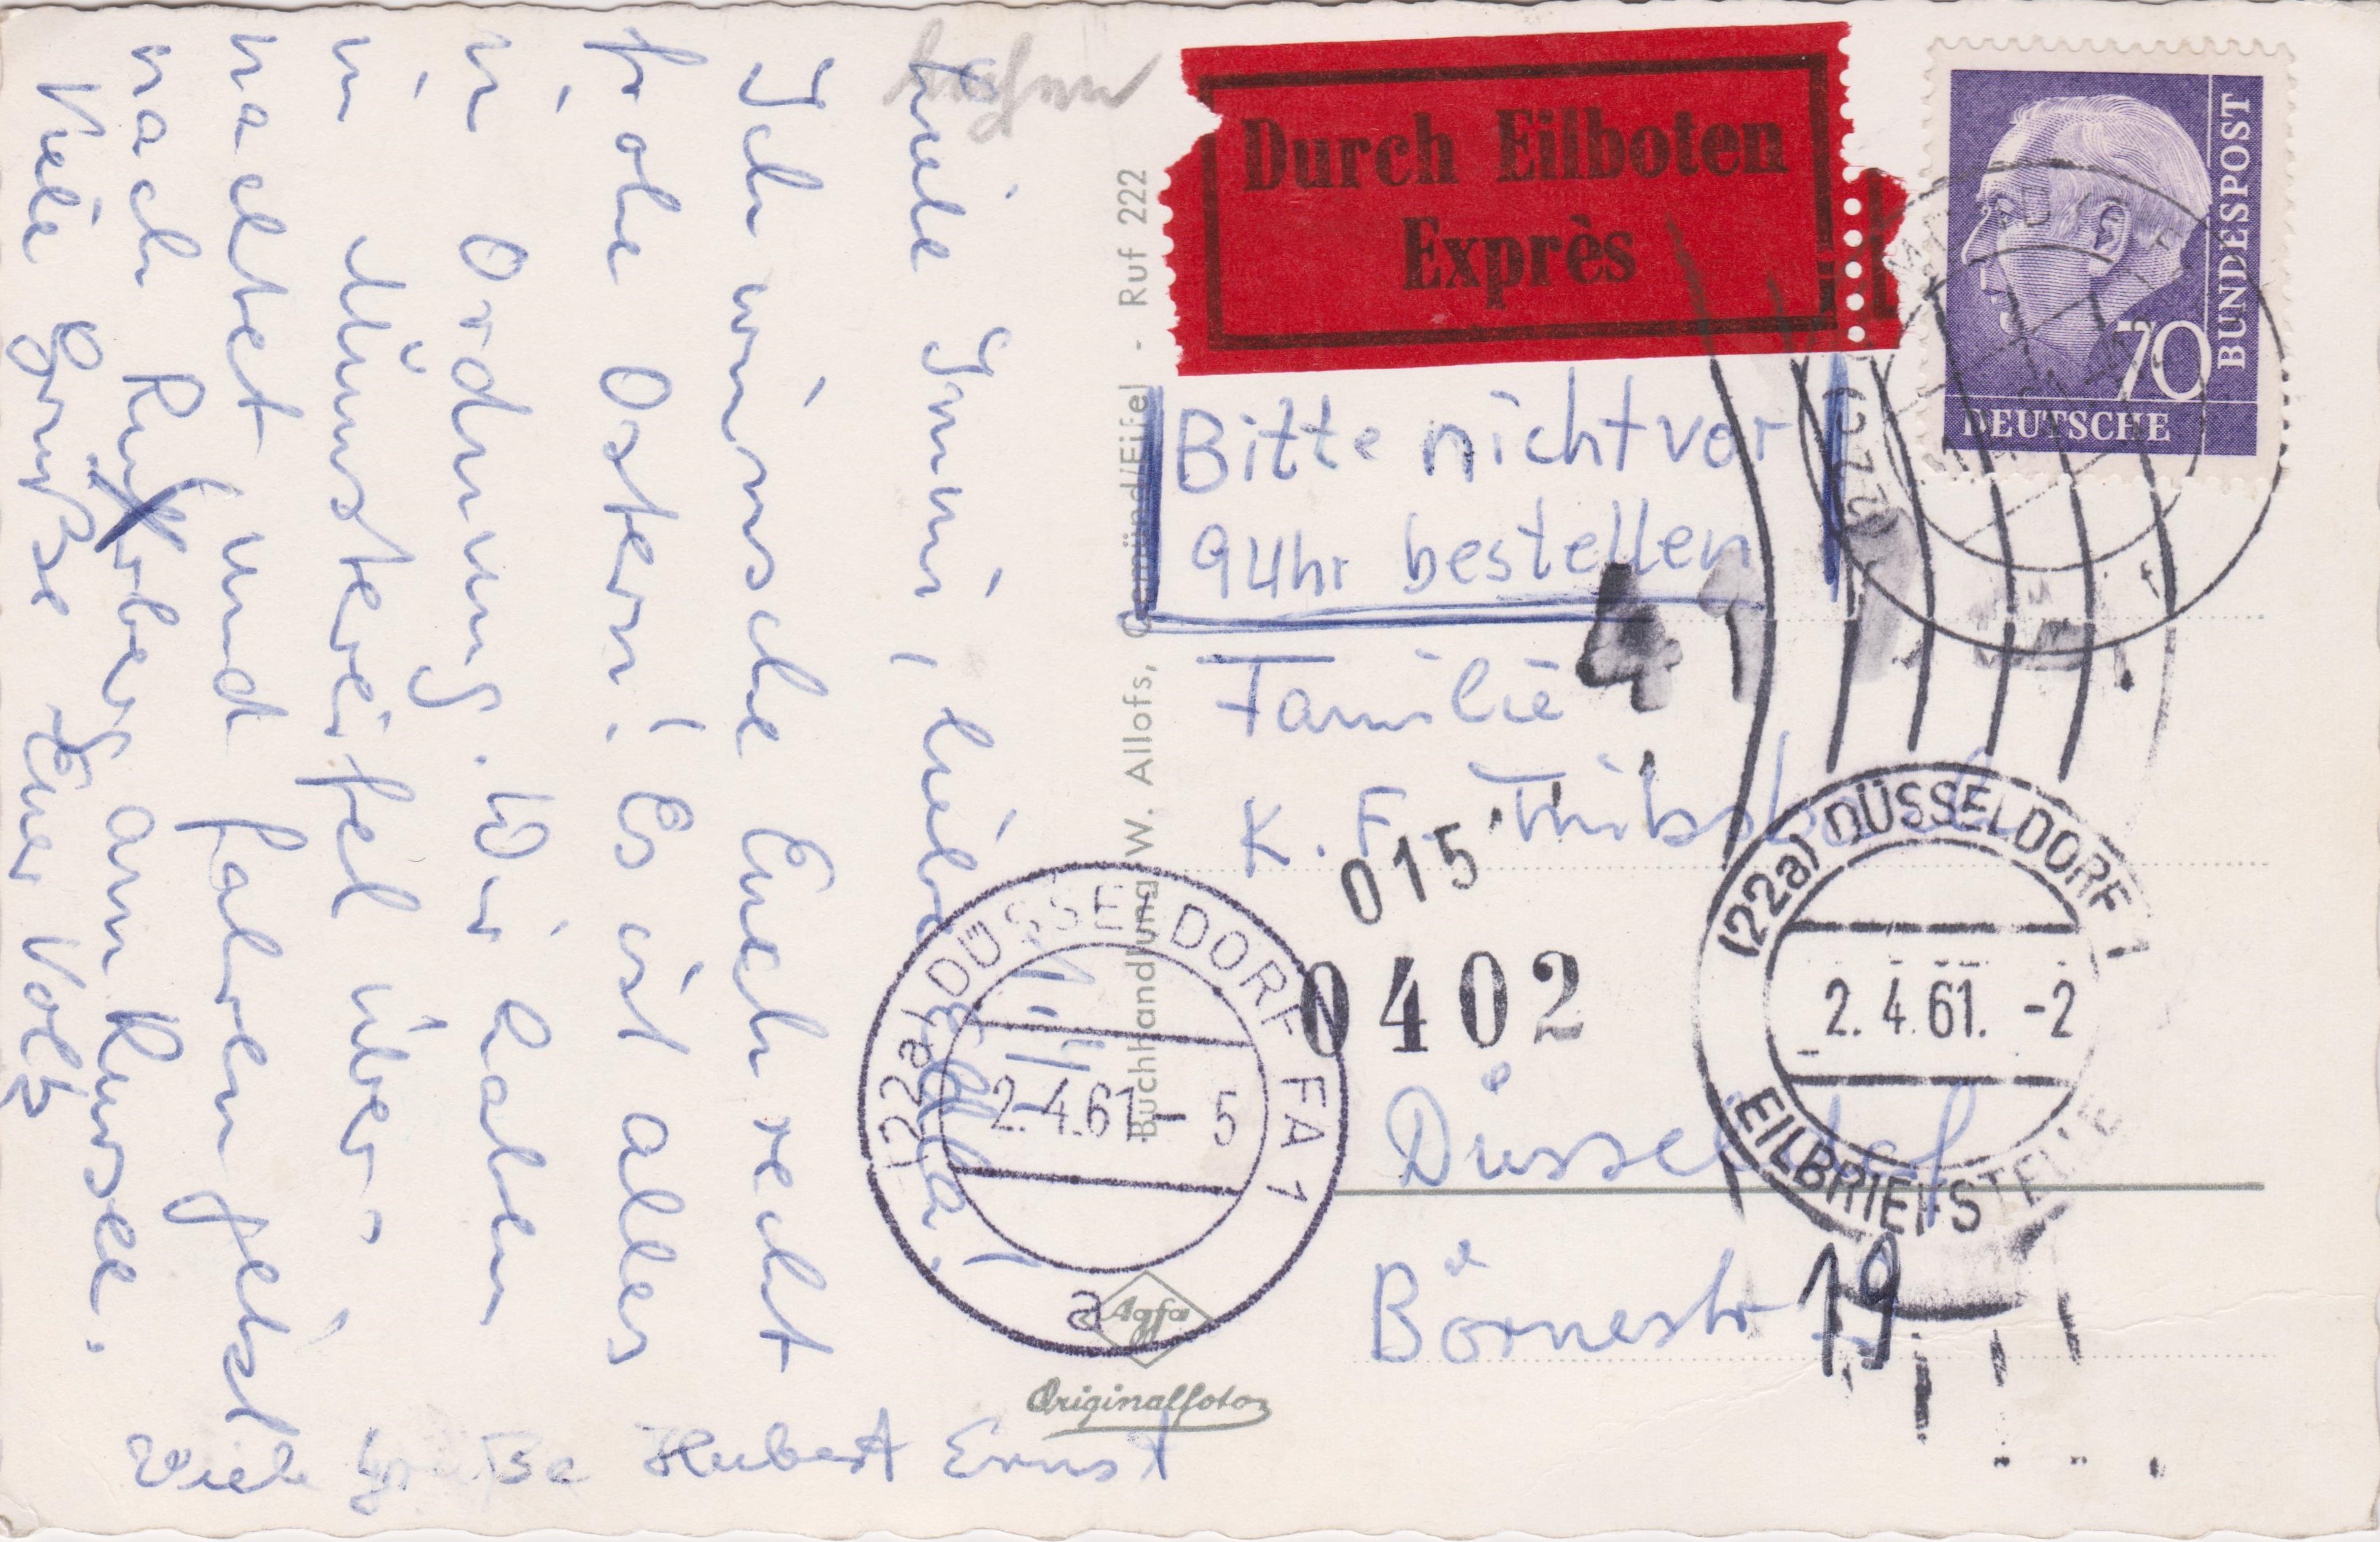 Liebe Immi, liebe
Ich wünsche Euch recht
frohe Ostern! Es ist alles
in Ordnung. Wir haben
in Münstereifel über-
nachtet und fahren jetzt
nach Rurberg am Rursee.
Viele Grüße Euer Volk
Viele Grüße Hubert Ernst
Buchhandlung W. Allofs, Gemünd/Eifel - Ruf 222
Agfa
Originalfoto
Durch Eilboten
Exprès
70
DEUTSCHE
BUNDESPOST
Bitte nicht vor
9 Uhr bestellen
41
Familie
K. F.
015
0402
Düsseldorf
Börnestr 19
(22a) DÜSSELDORF FA 1
2.4.61 - 5
a
(22a) DÜSSELDORF 1
2. 4. 61. -2
EILBRIEFSTELLE